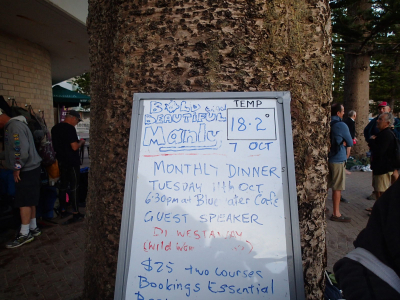 BOLD and
BEAUTIFUL
Manly
TEMP
18.2°
7 OCT
MONTHLY DINNER
TUESDAY 11th OCT
6:30pm at Blue Water Cafe
GUEST SPEAKER
DI WESTAWAY
(Wild Wom
$25 two courses
Bookings Essential